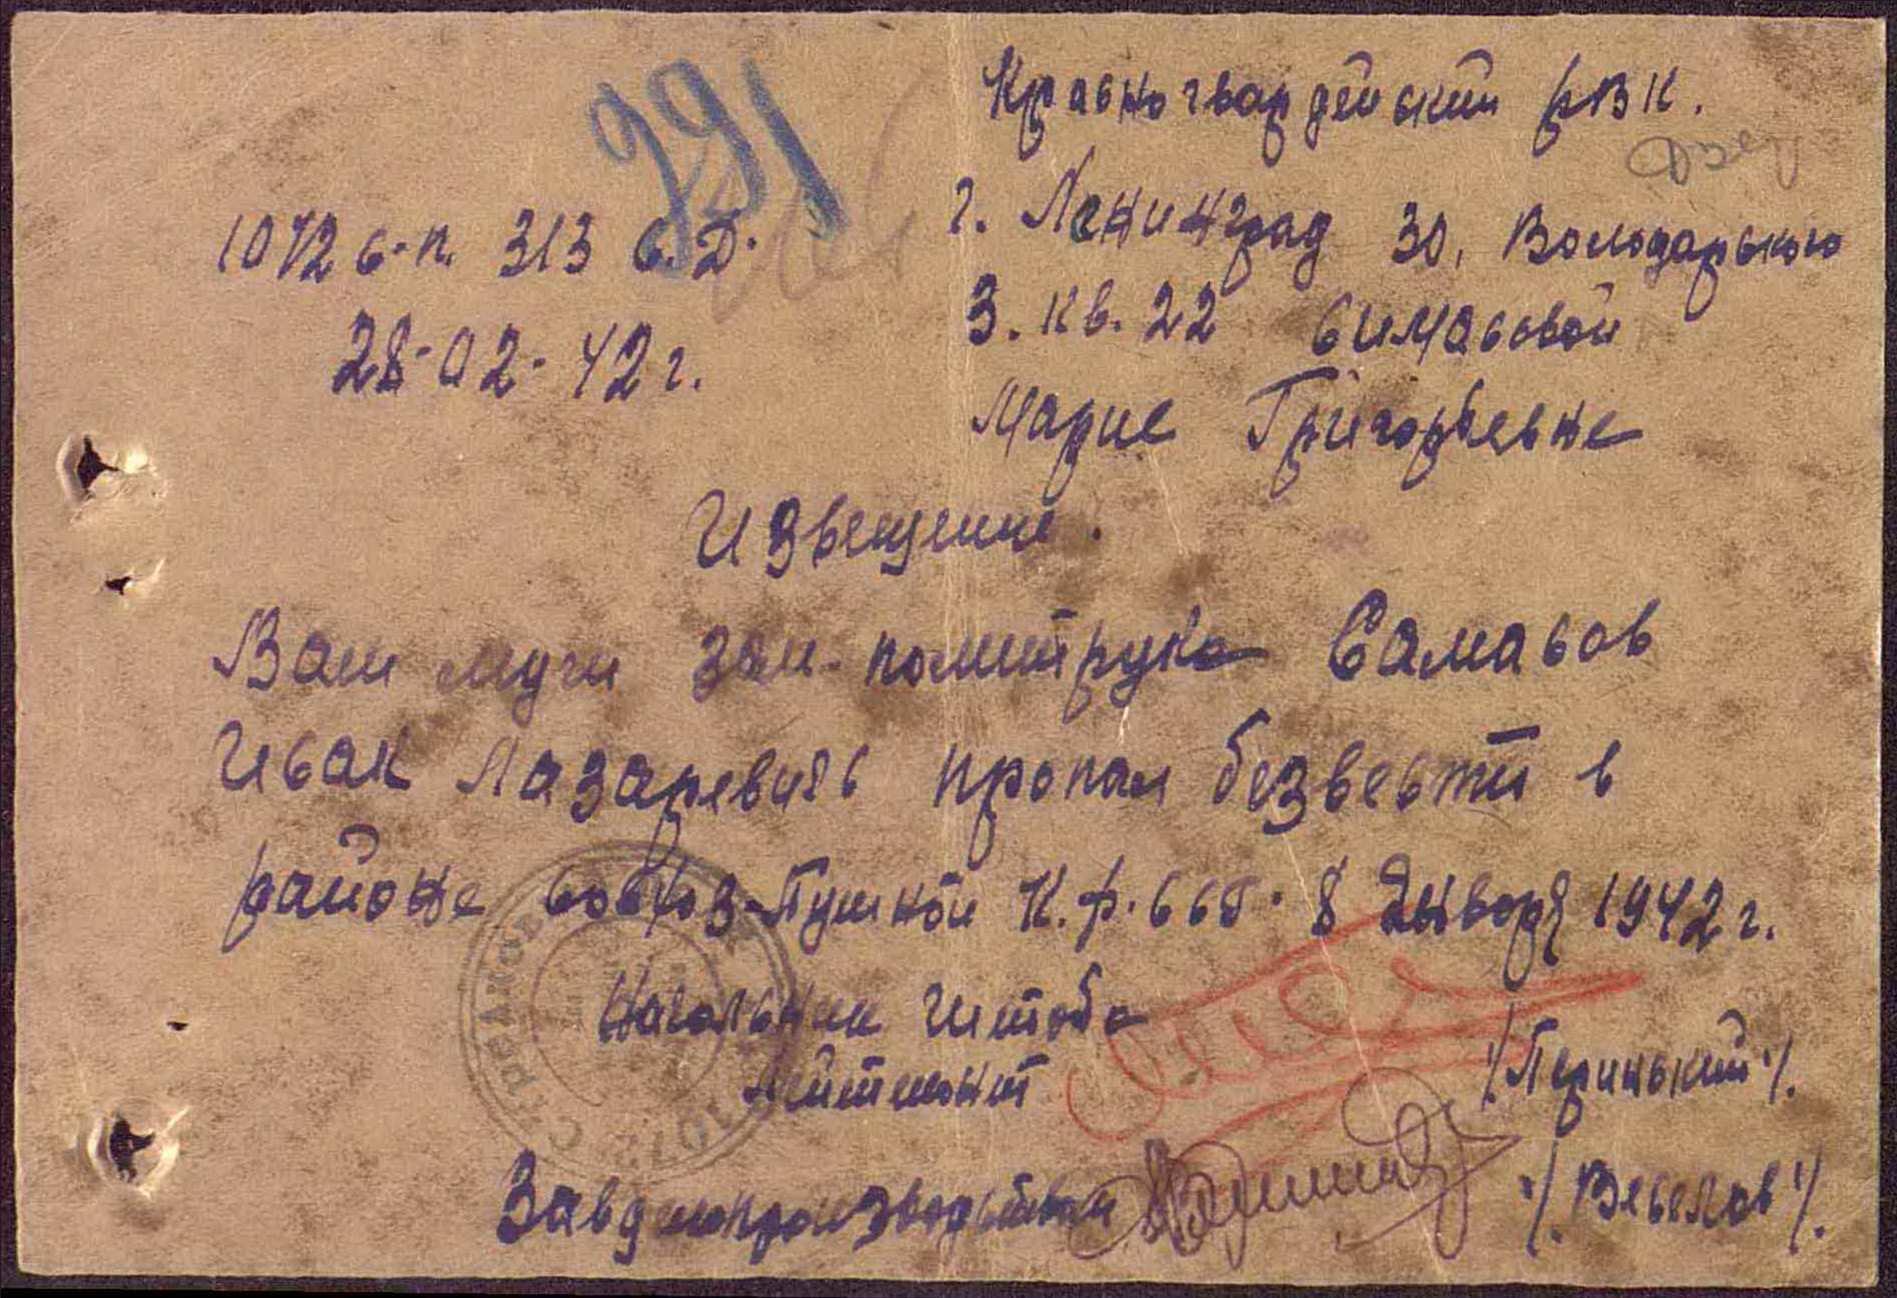 Красногвардейский РВК.
391
г. Ленинград 30, Володарского
1072 с.п. 313 с.д.
3. кв. 22 Симасовой
28-02-42 г.
Марие Григорьевне
Извещение.
Ваш муж зам. политрука Самасов
Исак Лазаревич пропал безвести в
районе совхоз-Пушной К.ф.ССР. 8 Января 1942 г.
Начальник Штаба
Лейтенант /Перинский/.
Завделопроизводством /Веселов/.
СТРЕЛКОВЫЙ
1072